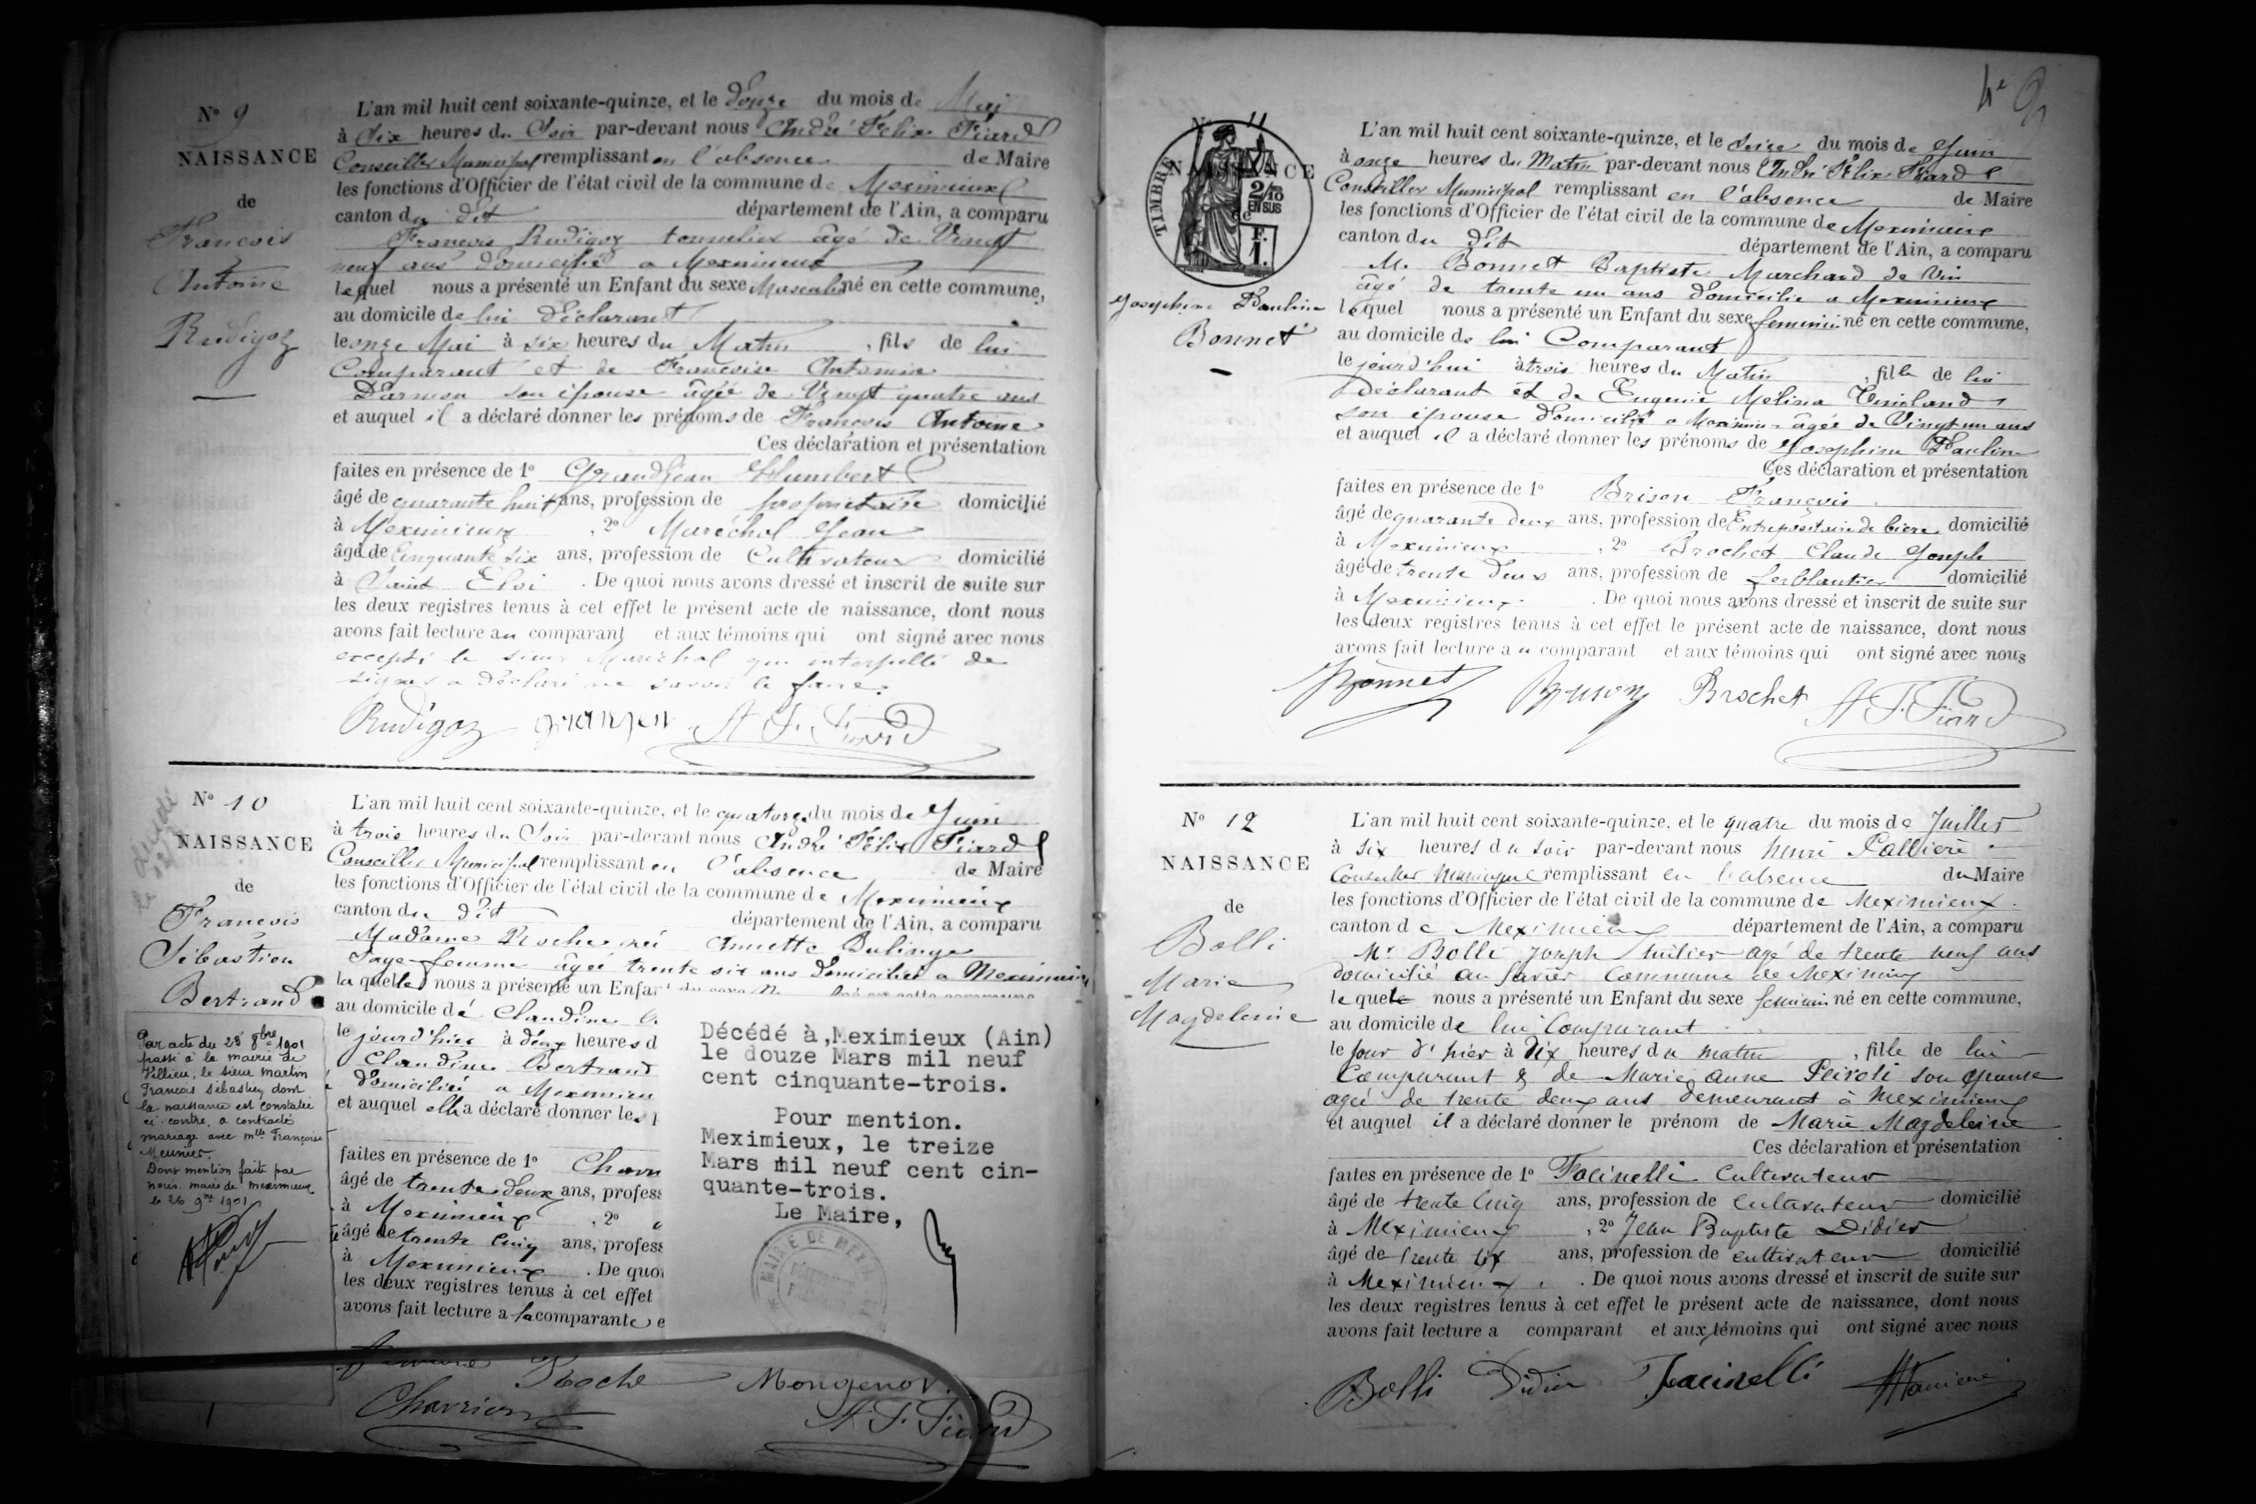 N° 9
NAISSANCE
de
François
Antoine
Rudigoz
L'an mil huit cent soixante-quinze, et le douze du mois de Mai
à Six heures du Soir par-devant nous André Félix Fiard
Conseiller Municipal remplissant en l'absence de Maire
les fonctions d'Officier de l'état civil de la commune de Meximieux
canton du dit département de l'Ain, a comparu
François Rudigoz tonnelier âgé de Vingt
neuf ans domicilié a Meximieux
lequel nous a présenté un Enfant du sexe Masculin né en cette commune,
au domicile de lui Déclarant
le onze Mai à six heures du Matin, fils de lui
Comparant et de Françoise Antomie
Darmon son épouse âgée de Vingt quatre ans
et auquel il a déclaré donner les prénoms de François Antoine
Ces déclaration et présentation
faites en présence de 1° Grandjean Humbert
âgé de quarante huit ans, profession de propriétaire domicilié
à Meximieux, 2° Maréchal Jean
âgé de Cinquante six ans, profession de Cultivateur domicilié
à Saint Eloi. De quoi nous avons dressé et inscrit de suite sur
les deux registres tenus à cet effet le présent acte de naissance, dont nous
avons fait lecture au comparant et aux témoins qui ont signé avec nous
excepté le sieur Maréchal qui interpellé de
signer a déclaré ne savoir le faire.
Rudigoz A F. Fiard
N° 10
NAISSANCE
de
François
Sébastien
Bertrand
décédé
Par acte du 28 8bre 1901
passé à la mairie de
Villieu, le sieur Martin
François Sébastien dont
la naissance est constatée
ci-contre, a contracté
mariage avec Mlle Françoise
Meunier.
Dont mention faite par
nous maire de Meximieux
le 26 9bre 1901
L'an mil huit cent soixante-quinze, et le quatorze du mois de Juin
à trois heures du Soir par-devant nous André Félix Fiard
Conseiller Municipal remplissant en l'absence de Maire
les fonctions d'Officier de l'état civil de la commune de Meximieux
canton du dit département de l'Ain, a comparu
Madame Roche née Annette Bulinge
Sage-femme âgée trente six ans domiciliée a Meximieux
la quelle nous a présenté un Enfant
au domicile de Claudine
le jourd'hier à deux heures d
Claudine Bertrand
domiciliée a Meximieu
et auquel elle a déclaré donner les p
faites en présence de 1° Charr
âgé de trente deux ans, profess
à Meximieux, 2°
âgé de trente cinq ans, profess
à Meximieux. De quoi
les deux registres tenus à cet effet
avons fait lecture a la comparante e
Décédé à, Meximieux (Ain)
le douze Mars mil neuf
cent cinquante-trois.
Pour mention.
Meximieux, le treize
Mars mil neuf cent cin-
quante-trois.
Le Maire,
MAIRIE DE MEX
Roche Mongenot
Charrion A. F. Fiard
N° 11
NAISSANCE
TIMBRE
2/10
EN SUS
F.
1.
Josephine Pauline
Bonnet
L'an mil huit cent soixante-quinze, et le Seize du mois de Juin
à onze heures du Matin par-devant nous André Félix Fiard
Conseiller Municipal remplissant en l'absence de Maire
les fonctions d'Officier de l'état civil de la commune de Meximieux
canton du dit département de l'Ain, a comparu
M. Bonnet Baptiste Marchand de Vin
âgé de trente un ans domicilié a Meximieux
lequel nous a présenté un Enfant du sexe feminin né en cette commune,
au domicile de lui Comparant
le jourd'hui à trois heures du Matin, fille de lui
Déclarant et de Eugenie Mélina
son épouse domicilié a Meximieux âgée de Vingt un ans
et auquel il a déclaré donner les prénoms de Josephine Pauline
Ces déclaration et présentation
faites en présence de 1° Brison François
âgé de quarante deux ans, profession de Entrepositaire de bière domicilié
à Meximieux, 2° Brochet Claude Joseph
âgé de trente deux ans, profession de ferblantier domicilié
à Meximieux. De quoi nous avons dressé et inscrit de suite sur
les deux registres tenus à cet effet le présent acte de naissance, dont nous
avons fait lecture au comparant et aux témoins qui ont signé avec nous
Bonnet Brison Brochet A F. Fiard
N° 12
NAISSANCE
de
Bolli
Marie
Magdeleine
L'an mil huit cent soixante-quinze, et le quatre du mois de Juillet
à six heures du soir par-devant nous henri
Conseiller Municipal remplissant en l'absence du Maire
les fonctions d'Officier de l'état civil de la commune de Meximieux.
canton de Meximieux département de l'Ain, a comparu
Mr Bolli Joseph âgé de trente neuf ans
domicilié au commune de Meximieux
le quel nous a présenté un Enfant du sexe feminin né en cette commune,
au domicile de lui Comparant
le jour d'hier à dix heures du matin, fille de lui
Comparant & de Marie anne Peiroti son épouse
agée de trente deux ans demeurant à Meximieux
et auquel il a déclaré donner le prénom de Marie Magdeleine
Ces déclaration et présentation
faites en présence de 1° Facinelli Cultivateur
âgé de trente Cinq ans, profession de cultivateur domicilié
à Meximieux, 2° Jean Baptiste Didier
âgé de trente six ans, profession de cultivateur domicilié
à Meximieux. De quoi nous avons dressé et inscrit de suite sur
les deux registres tenus à cet effet le présent acte de naissance, dont nous
avons fait lecture a comparant et aux témoins qui ont signé avec nous
Bolli Didier Facinelli